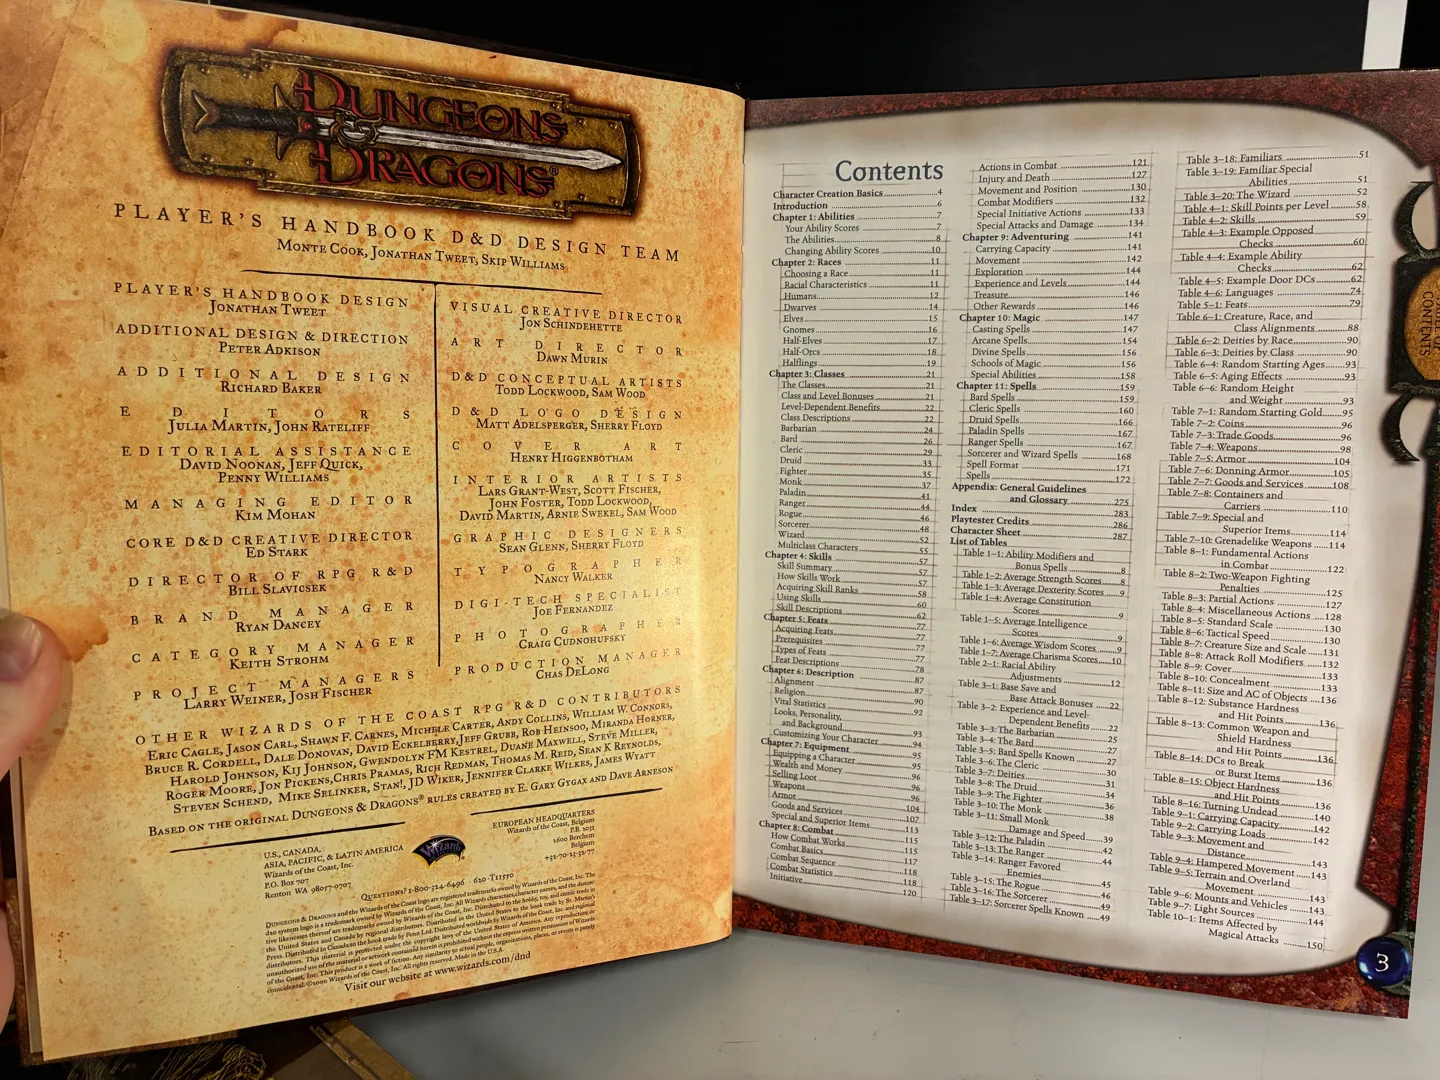 DUNGEONS
&
DRAGONS®
PLAYER'S HANDBOOK D&D DESIGN TEAM
MONTE COOK, JONATHAN TWEET, SKIP WILLIAMS
PLAYER'S HANDBOOK DESIGN
JONATHAN TWEET
ADDITIONAL DESIGN & DIRECTION
PETER ADKISON
ADDITIONAL DESIGN
RICHARD BAKER
EDITORS
JULIA MARTIN, JOHN RATELIFF
EDITORIAL ASSISTANCE
DAVID NOONAN, JEFF QUICK,
PENNY WILLIAMS
MANAGING EDITOR
KIM MOHAN
CORE D&D CREATIVE DIRECTOR
ED STARK
DIRECTOR OF RPG R&D
BILL SLAVICSEK
BRAND MANAGER
RYAN DANCEY
CATEGORY MANAGER
KEITH STROHM
PROJECT MANAGERS
LARRY WEINER, JOSH FISCHER
VISUAL CREATIVE DIRECTOR
JON SCHINDEHETTE
ART DIRECTOR
DAWN MURIN
D&D CONCEPTUAL ARTISTS
TODD LOCKWOOD, SAM WOOD
D&D LOGO DESIGN
MATT ADELSPERGER, SHERRY FLOYD
COVER ART
HENRY HIGGENBOTHAM
INTERIOR ARTISTS
LARS GRANT-WEST, SCOTT FISCHER,
JOHN FOSTER, TODD LOCKWOOD,
DAVID MARTIN, ARNIE SWEKEL, SAM WOOD
GRAPHIC DESIGNERS
SEAN GLENN, SHERRY FLOYD
TYPOGRAPHER
NANCY WALKER
DIGI-TECH SPECIALIST
JOE FERNANDEZ
PHOTOGRAPHER
CRAIG CUDNOHUFSKY
PRODUCTION MANAGER
CHAS DELONG
OTHER WIZARDS OF THE COAST RPG R&D CONTRIBUTORS
ERIC CAGLE, JASON CARL, SHAWN F. CARNES, MICHELE CARTER, ANDY COLLINS, WILLIAM W. CONNORS,
BRUCE R. CORDELL, DALE DONOVAN, DAVID ECKELBERRY, JEFF GRUBB, ROB HEINSOO, MIRANDA HORNER,
HAROLD JOHNSON, KIJ JOHNSON, GWENDOLYN FM KESTREL, DUANE MAXWELL, STEVE MILLER,
ROGER MOORE, JON PICKENS, CHRIS PRAMAS, RICH REDMAN, THOMAS M. REID, SEAN K REYNOLDS,
STEVEN SCHEND, MIKE SELINKER, STAN!, JD WIKER, JENNIFER CLARKE WILKES, JAMES WYATT
BASED ON THE ORIGINAL DUNGEONS & DRAGONS® RULES CREATED BY E. GARY GYGAX AND DAVE ARNESON
U.S., CANADA,
ASIA, PACIFIC, & LATIN AMERICA
Wizards of the Coast, Inc.
P.O. Box 707
Renton WA 98057-0707
Wizards
EUROPEAN HEADQUARTERS
Wizards of the Coast, Belgium
P.B. 2031
2600 Berchem
Belgium
+32-70-23-32-77
QUESTIONS? 1-800-324-6496 620-T11550
DUNGEONS & DRAGONS and the Wizards of the Coast logo are registered trademarks owned by Wizards of the Coast, Inc. The
d20 system logo is a trademark owned by Wizards of the Coast, Inc. All Wizards characters, character names, and the distinc-
tive likenesses thereof are trademarks owned by Wizards of the Coast, Inc. Distributed to the hobby, toy, and comic trade in
the United States and Canada by regional distributors. Distributed in the United States to the book trade by St. Martin's
Press. Distributed in Canada to the book trade by Fenn Ltd. Distributed worldwide by Wizards of the Coast, Inc. and regional
distributors. This material is protected under the copyright laws of the United States of America. Any reproduction or
unauthorized use of the material or artwork contained herein is prohibited without the express written permission of Wizards
of the Coast, Inc. This product is a work of fiction. Any similarity to actual people, organizations, places, or events is purely
coincidental. ©2000 Wizards of the Coast, Inc. All rights reserved. Made in the U.S.A.
Visit our website at www.wizards.com/dnd
Contents
Character Creation Basics 4
Introduction 6
Chapter 1: Abilities 7
Your Ability Scores 7
The Abilities 8
Changing Ability Scores 10
Chapter 2: Races 11
Choosing a Race 11
Racial Characteristics 11
Humans 12
Dwarves 14
Elves 15
Gnomes 16
Half-Elves 17
Half-Orcs 18
Halflings 19
Chapter 3: Classes 21
The Classes 21
Class and Level Bonuses 21
Level-Dependent Benefits 22
Class Descriptions 22
Barbarian 24
Bard 26
Cleric 29
Druid 33
Fighter 35
Monk 37
Paladin 41
Ranger 44
Rogue 46
Sorcerer 48
Wizard 52
Multiclass Characters 55
Chapter 4: Skills 57
Skill Summary 57
How Skills Work 57
Acquiring Skill Ranks 58
Using Skills 60
Skill Descriptions 62
Chapter 5: Feats 77
Acquiring Feats 77
Prerequisites 77
Types of Feats 77
Feat Descriptions 78
Chapter 6: Description 87
Alignment 87
Religion 90
Vital Statistics 92
Looks, Personality,
and Background 93
Customizing Your Character 94
Chapter 7: Equipment 95
Equipping a Character 95
Wealth and Money 96
Selling Loot 96
Weapons 96
Armor 104
Goods and Services 107
Special and Superior Items 113
Chapter 8: Combat 115
How Combat Works 115
Combat Basics 117
Combat Sequence 118
Combat Statistics 118
Initiative 120
Actions in Combat 121
Injury and Death 127
Movement and Position 130
Combat Modifiers 132
Special Initiative Actions 133
Special Attacks and Damage 134
Chapter 9: Adventuring 141
Carrying Capacity 141
Movement 142
Exploration 144
Experience and Levels 144
Treasure 146
Other Rewards 146
Chapter 10: Magic 147
Casting Spells 147
Arcane Spells 154
Divine Spells 156
Schools of Magic 156
Special Abilities 158
Chapter 11: Spells 159
Bard Spells 159
Cleric Spells 160
Druid Spells 166
Paladin Spells 167
Ranger Spells 167
Sorcerer and Wizard Spells 168
Spell Format 171
Spells 172
Appendix: General Guidelines
and Glossary 275
Index 283
Playtester Credits 286
Character Sheet 287
List of Tables
Table 1–1: Ability Modifiers and
Bonus Spells 8
Table 1–2: Average Strength Scores 8
Table 1–3: Average Dexterity Scores 9
Table 1–4: Average Constitution
Scores 9
Table 1–5: Average Intelligence
Scores 9
Table 1–6: Average Wisdom Scores 9
Table 1–7: Average Charisma Scores 10
Table 2–1: Racial Ability
Adjustments 12
Table 3–1: Base Save and
Base Attack Bonuses 22
Table 3–2: Experience and Level-
Dependent Benefits 22
Table 3–3: The Barbarian 25
Table 3–4: The Bard 27
Table 3–5: Bard Spells Known 27
Table 3–6: The Cleric 30
Table 3–7: Deities 31
Table 3–8: The Druid 34
Table 3–9: The Fighter 36
Table 3–10: The Monk 38
Table 3–11: Small Monk
Damage and Speed 39
Table 3–12: The Paladin 42
Table 3–13: The Ranger 44
Table 3–14: Ranger Favored
Enemies 45
Table 3–15: The Rogue 46
Table 3–16: The Sorcerer 49
Table 3–17: Sorcerer Spells Known 49
Table 3–18: Familiars 51
Table 3–19: Familiar Special
Abilities 51
Table 3–20: The Wizard 52
Table 4–1: Skill Points per Level 58
Table 4–2: Skills 59
Table 4–3: Example Opposed
Checks 60
Table 4–4: Example Ability
Checks 62
Table 4–5: Example Door DCs 62
Table 4–6: Languages 74
Table 5–1: Feats 79
Table 6–1: Creature, Race, and
Class Alignments 88
Table 6–2: Deities by Race 90
Table 6–3: Deities by Class 90
Table 6–4: Random Starting Ages 93
Table 6–5: Aging Effects 93
Table 6–6: Random Height
and Weight 93
Table 7–1: Random Starting Gold 95
Table 7–2: Coins 96
Table 7–3: Trade Goods 96
Table 7–4: Weapons 98
Table 7–5: Armor 104
Table 7–6: Donning Armor 105
Table 7–7: Goods and Services 108
Table 7–8: Containers and
Carriers 110
Table 7–9: Special and
Superior Items 114
Table 7–10: Grenadelike Weapons 114
Table 8–1: Fundamental Actions
in Combat 122
Table 8–2: Two-Weapon Fighting
Penalties 125
Table 8–3: Partial Actions 127
Table 8–4: Miscellaneous Actions 128
Table 8–5: Standard Scale 130
Table 8–6: Tactical Speed 130
Table 8–7: Creature Size and Scale 131
Table 8–8: Attack Roll Modifiers 132
Table 8–9: Cover 133
Table 8–10: Concealment 133
Table 8–11: Size and AC of Objects 136
Table 8–12: Substance Hardness
and Hit Points 136
Table 8–13: Common Weapon and
Shield Hardness
and Hit Points 136
Table 8–14: DCs to Break
or Burst Items 136
Table 8–15: Object Hardness
and Hit Points 136
Table 8–16: Turning Undead 140
Table 9–1: Carrying Capacity 142
Table 9–2: Carrying Loads 142
Table 9–3: Movement and
Distance 143
Table 9–4: Hampered Movement 143
Table 9–5: Terrain and Overland
Movement 143
Table 9–6: Mounts and Vehicles 143
Table 9–7: Light Sources 144
Table 10–1: Items Affected by
Magical Attacks 150
CONTENTS
3